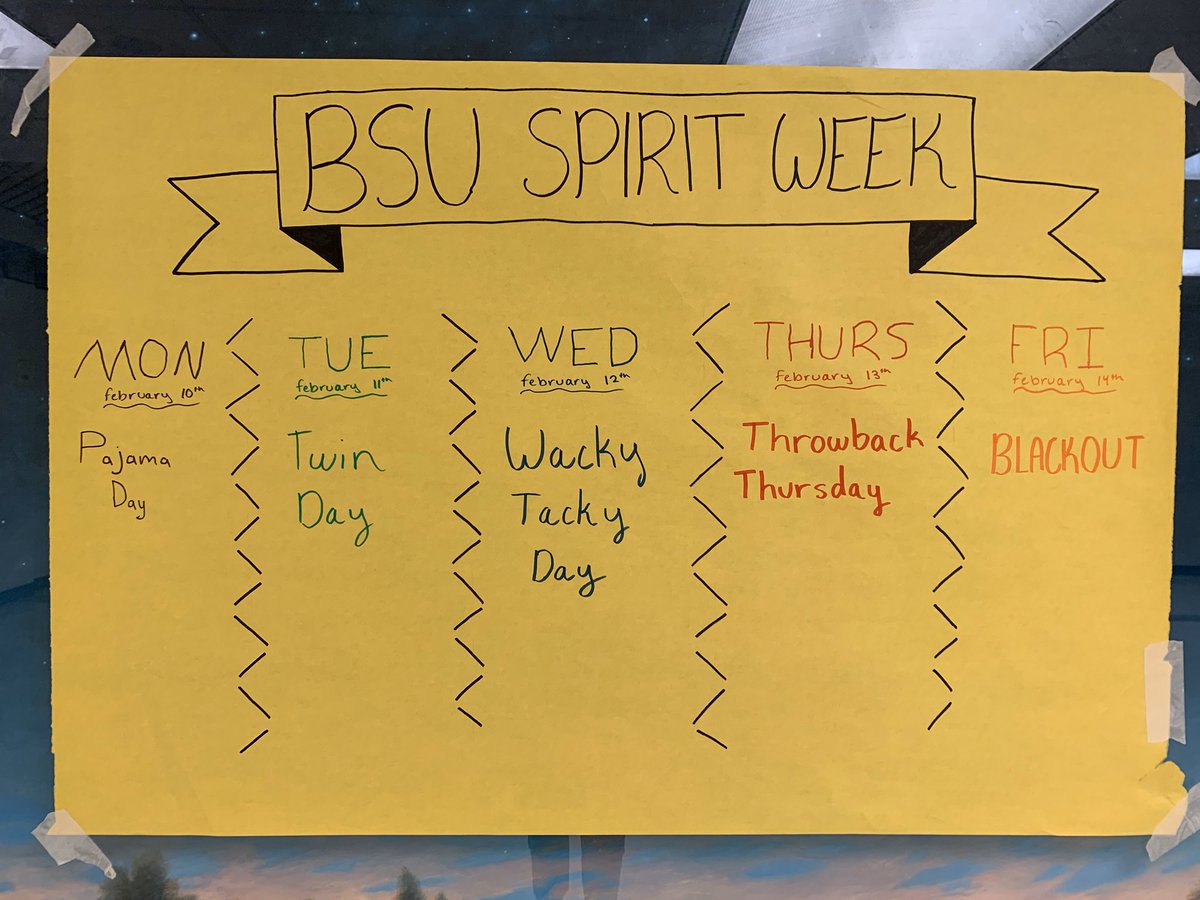 BSU SPIRIT WEEK
MON
february 10th
Pajama
Day
TUE
february 11th
Twin
Day
WED
february 12th
Wacky
Tacky
Day
THURS
february 13th
Throwback
Thursday
FRI
february 14th
BLACKOUT